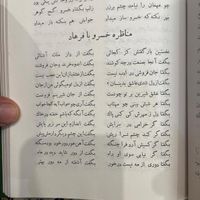 چو مهمان را نیامد چشم برزر زلب بگشاد خسرو گوهر
بهر نکته که خسرو ساز میداد جوابش هم بنکته باز میداد
مناظره خسرو با فرهاد
نخستین بار گفتش کز کجائی بگفت از دار ملک آشنائی
بگفت آنجا بصنعت در چه کوشند بگفت انده خرند و جان فروشند
بگفتا جان فروشی در ادب نیست بگفت از عشقبازان این عجب نیست
بگفت از دل شدی عاشق بدینسان بگفت از دل تو میگوئی من از جان
بگفتا عشق شیرین بر تو چونست بگفت از جان شیرینم فزونست
بگفتا هر شبش بینی چو مهتاب بگفت آری چو خواب آید کجا خواب
بگفتا دل ز مهرش کی کنی پاک بگفت آنگه که باشم خفته در خاک
بگفتا گر خرامی در سرایش بگفت اندازم این سر زیر پایش
بگفتا گر کند چشم ترا ریش بگفت این چشم دیگر دارمش پیش
بگفتا گر کسیش آرد فرا چنگ بگفت آهن خورد ور خود بود سنگ
بگفتا گر نیابی سوی او راه بگفت از دور شاید دید در ماه
بگفتا دوری از مه نیست در خور بگفت آشفته از مه دور بهتر